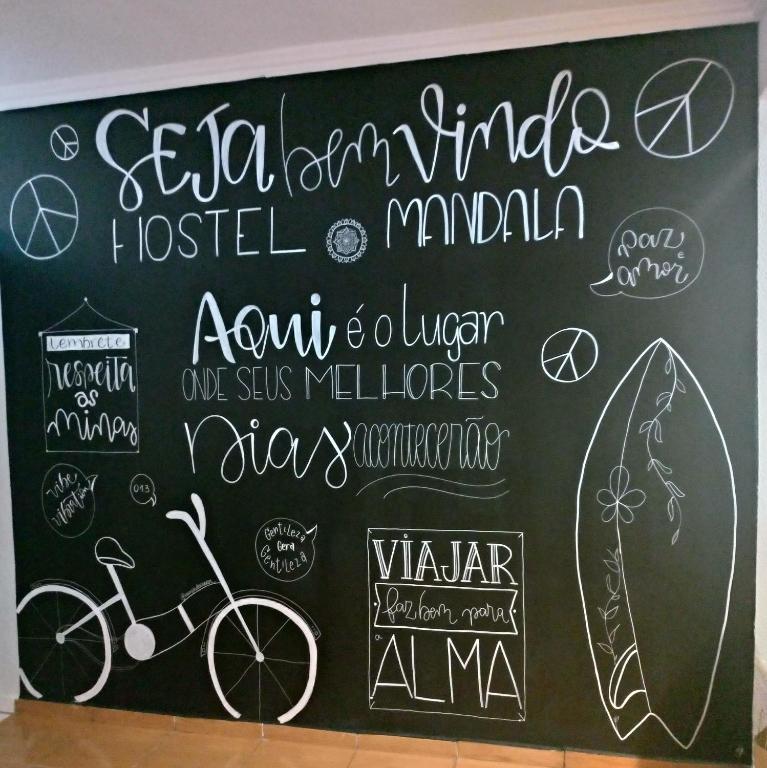 SEJA bem Vindo
HOSTEL MANDALA
paz
e
amor
Aqui é o lugar
ONDE SEUS MELHORES
Dias acontecerão
Lembrete
respeita
as
minas
vibe
vibratům
013
Gentileza
Gera
Gentileza
VIAJAR
faz bem para
a
ALMA